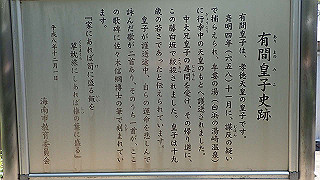 有間皇子史跡
有間皇子は、孝徳天皇の皇子です。
斉明四年(六五八)十一月に、謀反の疑い
で捕らえられ、牟婁の湯(白浜の湯崎温泉)
に行幸中の天皇のもとへ護送されました。
中大兄皇子の尋問を受け、その帰り道に、
この藤白坂で絞殺されました。皇子は十九
歳の若さであったと伝えられています。
皇子が護送途中、自らの運命を悲しんで
詠んだ歌が二首あり、そのうち一首が、ここ
の歌碑に佐々木信綱博士の筆で刻まれてい
ます。
『家にあれば笥に盛る飯を
草枕旅にしあれば椎の葉に盛る』
平成八年十二月一日
海南市教育委員会